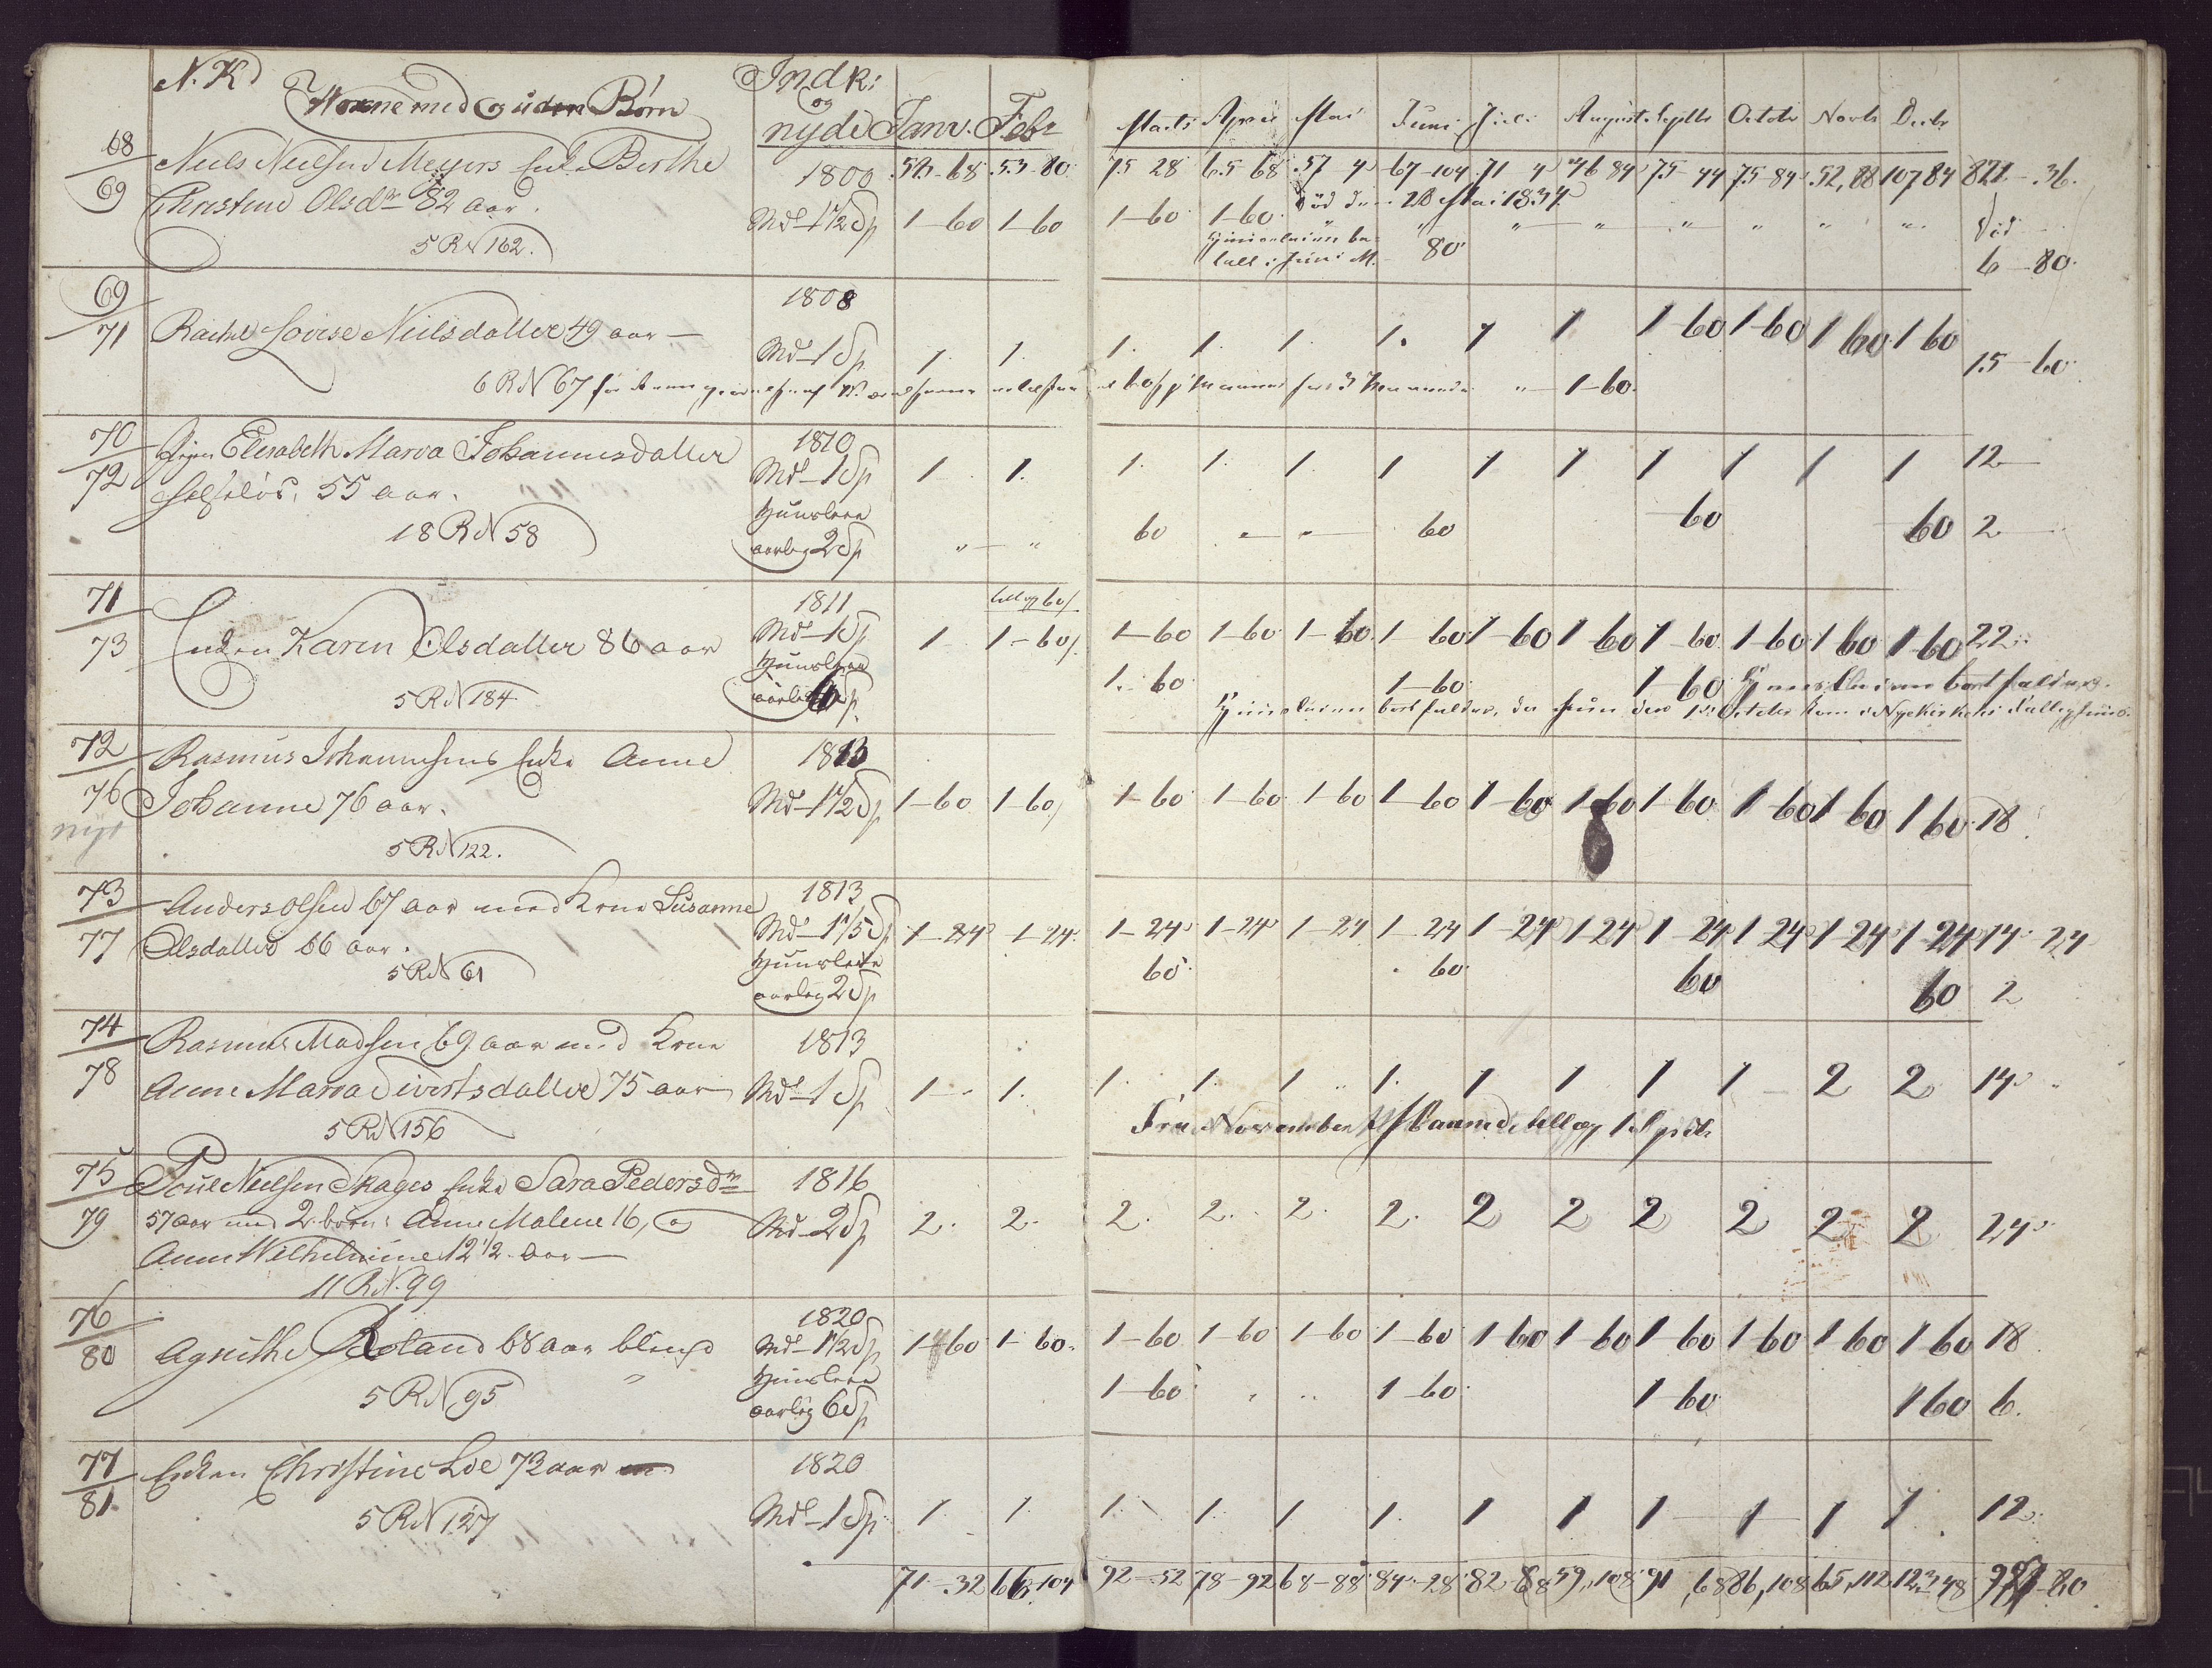 N. Kd
Woxne med og uden Børn
Indk: og nyde Janv. Febr Marts April Mai Juni Juli August Septbr Octobr Novb Decbr
68 Niels Nielsens Meyers Enke Birthe 1800 68 53-80 75 28 65 68 57 67-104 71 76 84 75-44 75-84 52,88 107 84 821-36.
69 Christine Olsdr 82 aar. Md-1 1/2 Sp 1-60 1-60 1-60 1-60 Död den 28 Mai 1834 Död
5 R N 162. Huusleien be-
talt i Juni M. 80 6-80
69 1808
71 Rachel Lovise Nielsdatter 49 aar - Md-1 Sp 1. 1. 1. 1. 1. 1. 1 1 1-60 1-60 1 60 1 60 15-60
6 R N 67 1-60
70 Elisabeth Maria Johannesdatter 1810
72 55 aar. Md-1 Sp 1 1. 1. 1. 1. 1 1 1 1 1 1 1 12
18 R N 58 Huusleie
aarlig 2 Sp " " 60 " " 60 60 60 2
71 1811 tillæg 60
73 Enken Karen Olsdatter 86 aar Md-1 Sp 1 1-60 1-60 1-60 1-60 1-60 1-60 1 60 1-60 1-60 1 60 1-60 22
Huusleie
5 R N 184 aarlig 6 Sp 1-60 1-60 1-60 Huusleien bortfalder
Huusleien bortfalder, da hun den 1ste October kom i Nyekirkens Fattighuus.
72 Rasmus Johannesens Enke Anne 1813
76 Johanne 76 aar. Md-1 1/2 Sp 1-60 1-60 1-60 1-60 1-60 1-60 1-60 1-60 1-60 1-60 1 60 1 60 18
nye
5 R N 122.
73 Anders Olsen 67 aar med Kone Susanne 1813
77 Olsdatter 66 aar. Md-1 1/5 Sp 1-24 1-24 1-24 1-24 1-24 1-24 1-24 1 24 1-24 1 24 1-24 1-24 14-24
5 R N 61 Huusleie
aarlig 2 Sp 60 60 60 60 2
74 Rasmus Madsen 69 aar med Kone 1813
78 Anne Maria Sivertsdatter 75 aar Md-1 Sp 1 1. 1. 1. 1 1. 1 1 1 1 2 2 14
5 R N 156 Fra November Maaned tillæg 1 Spdlr
75 Poul Nielsen Skages Enke Sara Pedersdr 1816
79 57 aar med 2 børn: Anne Malene 16, og Md-2 Sp 2. 2. 2. 2. 2. 2. 2 2 2 2 2 2 24
Anne Wilhelmine 12 1/2 aar -
11 R N. 99
76 1820
80 Agnethe Roland 68 aar blind Md-1 1/2 Sp 1-60 1-60 1-60 1-60 1-60 1-60 1 60 1-60 1-60 1-60 1 60 1-60 18
Huusleie
5 R N 95 aarlig 6 Sp 1-60 1-60 1-60 1 60 6.
77 Enken Christine Loe 72 aar 1820
81. Md-1 Sp 1. 1. 1. 1. 1 1. 1 1 1 1 1 1 12.
5 R N 127
71-32 66 104 92-52 78-92 68-88 84-28 82 68 59,108 91,68 86,108 65,112 123 48 80